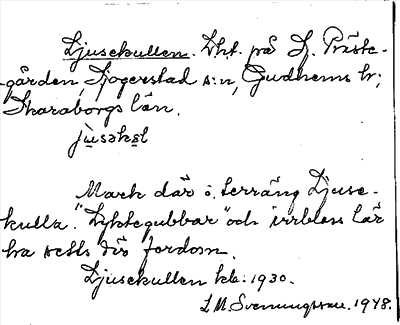 Ljusekullen. Lht. på Lj. Präste-
gården, Ljogerstad s:n, Gudhems hr;
Skaraborgs län.
Mark där i. terräng Ljuse-
kulla. "Lyktegubbar" och irrbloss lär
ha setts där fordom.
Ljusekullen kb. 1930.
L M Svenungsson. 1948.